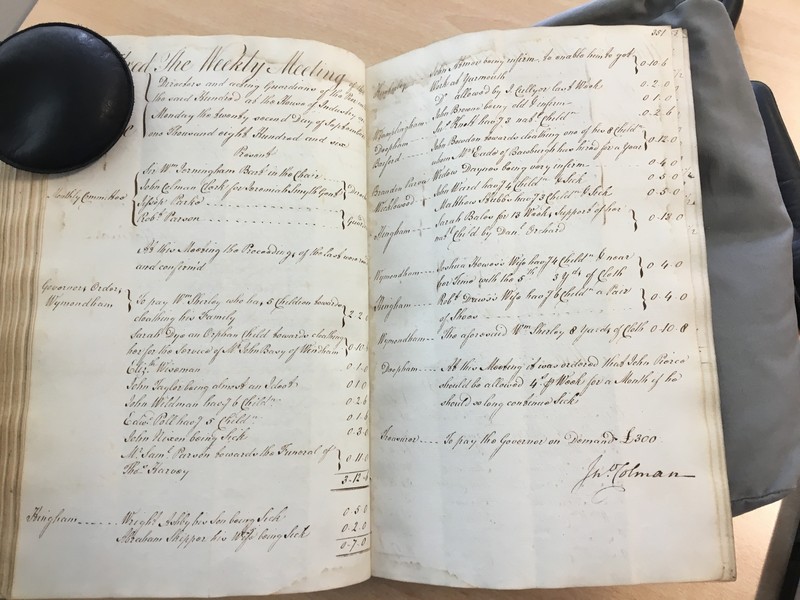 The Weekly Meeting of the
Directors and acting Guardians of the Poor
the said Hundred at the House of Industry on
Monday the twenty second Day of September
one Thousand eight Hundred and six
Present
Sir Wm Jerningham Bart in the Chair
Weekly Committee
John Colman Clerk for Jeremiah Smyth Gent
Joseph Parke
Robt Parson
At this Meeting the Proceedings of the last were
and confirm'd
Governors Orders
Wymondham
To pay Wm Sherley who has 5 Children towards
cloathing his Family 2-2
Sarah Dye an Orphan Child towards cloathing
her for the Service of Mr John Bavy of Windham 0-10
Elizth Wiseman 0-1
John Taylor being almost an Ideot 0-1-0
John Wildman havg 6 Childn 0-2-6
Edwd Poll havg 5 Childn 0-1-6
John Nixon being Sick 0-3
Mr Saml Parson towards the Funeral of
Thos Harvey 0-11-0
3-12
Hingham Wright Ashby his Son being Sick 0-5-0
Abraham Skipper his Wife being Sick 0-2-0
0-7-0
351
John being infirm to enable him to get
Work at Yarmouth 0-10-6
Do allowed by J Cullyer last Week 0-2-0
John Brown being old & infirm 0-1-0
havg 3 natl Childn 0-2-6
Deopham
John Bowden towards cloathing one of his 8 Childn
whom Mr Eade of Bawburgh has hired for a Year 0-12-0
Widow Daynes being very infirm 0-4-0
Brandon Parva John Ward havg 4 Childn & Sick 0-5-0
Wicklewood Matthew Stubbs havg 3 Childn & Sick 0-5-0
Hingham Sarah Bales for 13 Weeks Support of her
natl Child by Danl Orchard 0-18-0
Wymondham Joshua Howes's Wife havg 4 Childn & near
her Time with the 5th 3 yds of Cloth 0-4-0
Hingham Robt Drews's Wife havg 6 Childn a Pair
of Shoes 0-4-0
Wymondham The aforesaid Wm Sherley 8 Yards of Cloth 0-10-8
Deopham At this Meeting it was ordered that John Pierce
should be allowed 4s p Week for a Month if he
should so long continue Sick
Treasurer To pay the Governor on Demand £300
Jno Colman